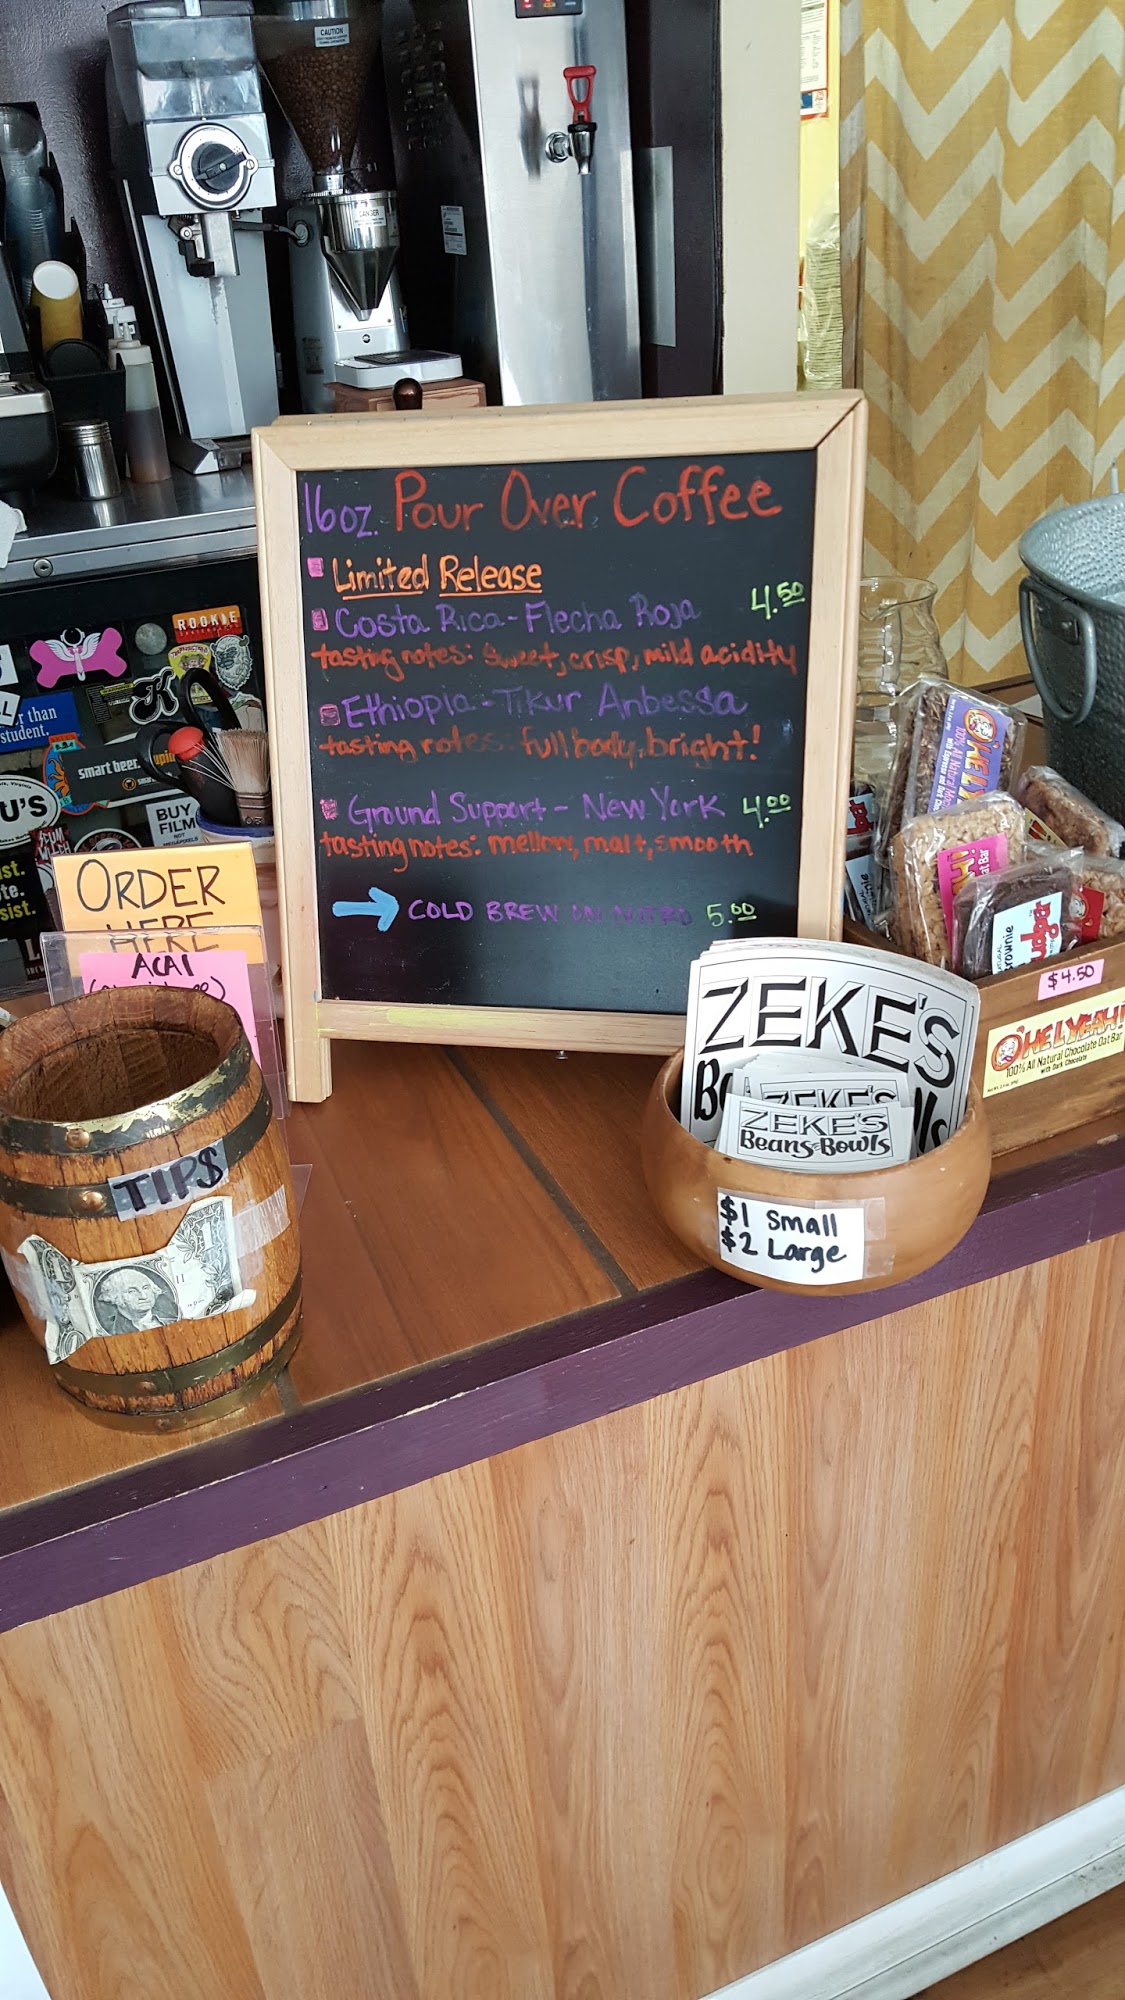 CAUTION
DANGER
16oz. Pour Over Coffee
Limited Release
Costa Rica - Flecha Roja 4.50
tasting notes: sweet, crisp, mild acidity
Ethiopia - Tikur Anbessa
tasting notes: full body, bright!
Ground Support - New York 4.00
tasting notes: mellow, malt, smooth
COLD BREW ON NITRO 5.00
ROOKIE
than
student.
smart beer.
U'S
BUY
FILM
NOT
MEGAPIXELS
ORDER
HERE
ACAI
TIPS
ZEKE'S
ZEKE'S
ZEKE'S
Beans & Bowls
$1 Small
$2 Large
$4.50
OHELYEAH!
100% All Natural Chocolate Oat Bar
with Dark Chocolate